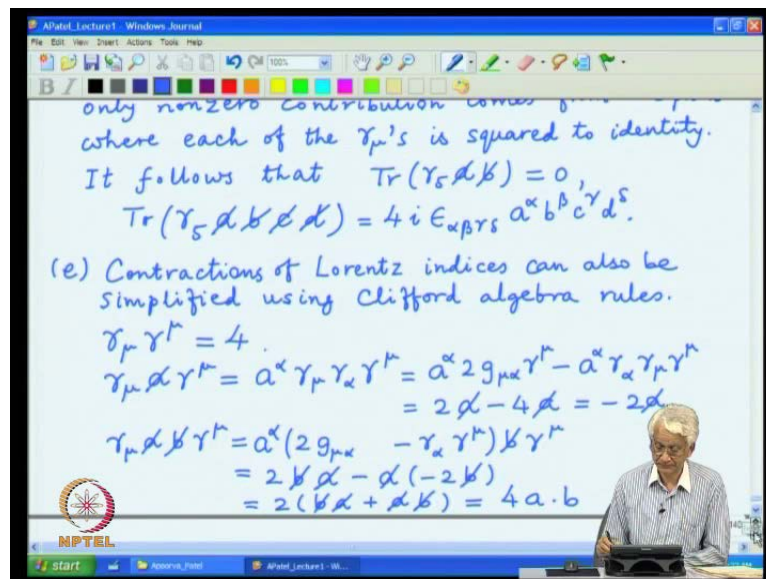 APatel_Lecture1 - Windows Journal
File Edit View Insert Actions Tools Help
100%
B I
only nonzero contribution comes
where each of the γμ's is squared to identity.
It follows that Tr(γ₅ a̸ b̸) = 0,
Tr(γ₅ a̸ b̸ c̸ d̸) = 4 i ϵ_αβγδ a^α b^β c^γ d^δ.
(e) Contractions of Lorentz indices can also be
simplified using Clifford algebra rules.
γ_μ γ^μ = 4.
γ_μ a̸ γ^μ = a^α γ_μ γ_α γ^μ = a^α 2g_μα γ^μ - a^α γ_α γ_μ γ^μ
= 2a̸ - 4a̸ = -2a̸
γ_μ a̸ b̸ γ^μ = a^α (2g_μα - γ_α γ^μ) b̸ γ^μ
= 2 b̸ a̸ - a̸ (-2b̸)
= 2(b̸ a̸ + a̸ b̸) = 4a·b
NPTEL
start Apoorva_Patel APatel_Lecture1 - Wi...